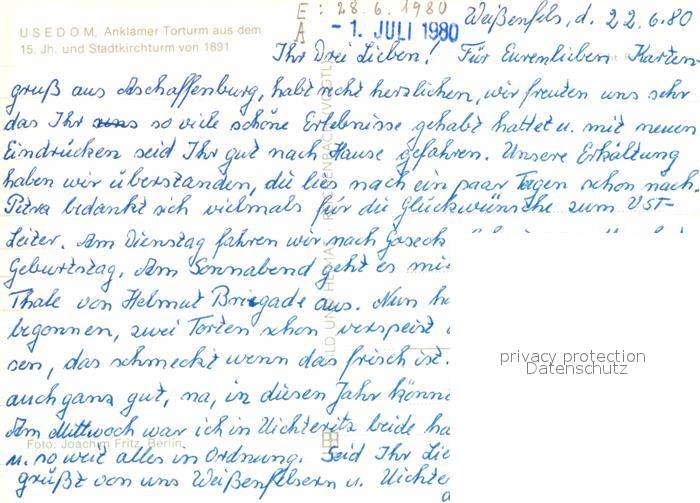 E : 28.6.1980
A - 1. JULI 1980
USEDOM, Anklamer Torturm aus dem
15. Jh. und Stadtkirchturm von 1891
Weißenfels, d. 22.6.80
Ihr Drei Lieben! Für Euren lieben Karten-
gruß aus Aschaffenburg, habt recht herzlichen, wir freuten uns sehr
das Ihr so viele schöne Erlebnisse gehabt hattet u. mit neuen
Eindrücken seid Ihr gut nach Hause gefahren. Unsere Erkältung
haben wir überstanden, die lies nach ein paar Tagen schon nach.
Petra bedankt sich vielmals für die Glückwünsche zum VST-
Leiter. Am Dienstag fahren wir nach Goseck
Geburtstag. Am Sonnabend geht es mi
Thale von Helmut Brigade aus. Nun ha
begonnen, zwei Torten schon verspeist
sen, das schmeckt wenn das frisch ist.
auch ganz gut, na, in diesen Jahr könn
Am Mittwoch war ich in Uichteritz beide ha
u. so weit alles in Ordnung. Seid Ihr Lie
grüßt von uns Weißenfelsern u. Uichte
Foto: Joachim Fritz, Berlin
BILD UND HEIMAT REICHENBACH (VOGTL)
privacy protection
Datenschutz